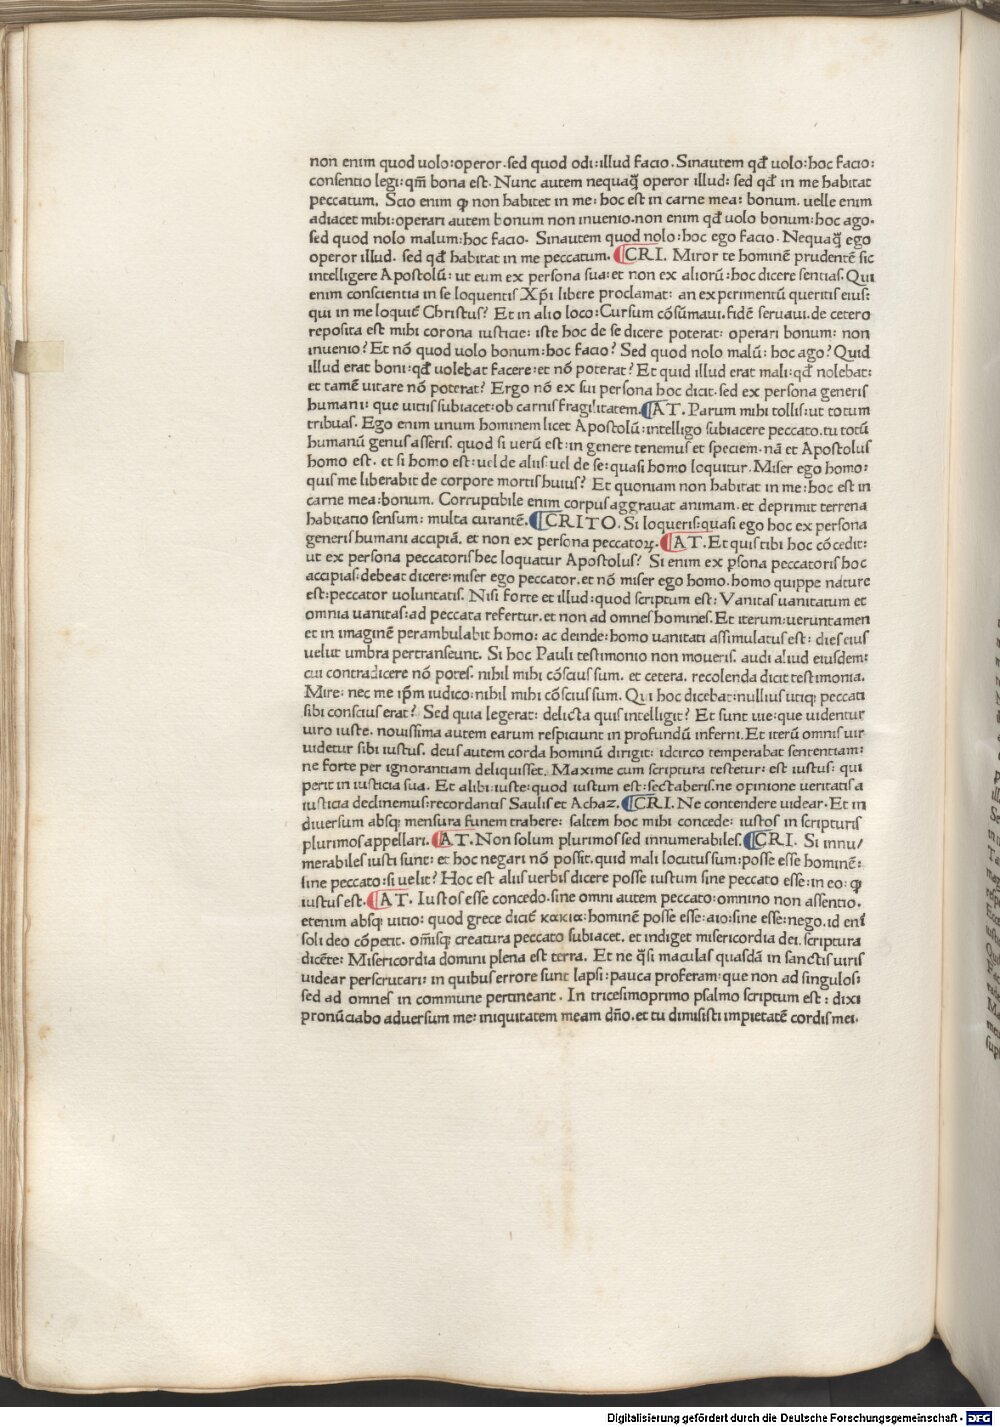 non enim quod uolo:operor.sed quod odi:illud facio.Sinautem qđ uolo:hoc facio:
consentio legi:qm̄ bona est.Nunc autem nequaq̄ operor illud:sed qđ in me habitat
peccatum. Scio enim ꝙ non habitet in me:hoc est in carne mea:bonum.uelle enim
adiacet mihi:operari autem bonum non inuenio.non enim qđ uolo bonum:hoc ago.
sed quod nolo malum:hoc facio. Sinautem quod nolo:hoc ego facio.Nequaq̄ ego
operor illud. sed qđ habitat in me peccatum. ¶CRI. Miror te hominē prudentē sic
intelligere Apostolū:ut eum ex persona sua:et non ex alioꝝ:hoc dicere sentias.Qui
enim conscientia in se loquentis Xp̄i libere proclamat:an experimentū queritis eius:
qui in me loquit̄ Christus? Et in alio loco:Cursum cōsūmaui.fidē seruaui.de cetero
reposita est mihi corona iusticie:iste hoc de se dicere poterat:operari bonum:non
inuenio? Et nō quod uolo bonum:hoc facio? Sed quod nolo malū:hoc ago? Quid
illud erat boni:qđ uolebat facere:et nō poterat? Et quid illud erat mali:qđ nolebat:
et tamē uitare nō poterat? Ergo nō ex sui persona hoc dicit.sed ex persona generis
humani:que uitiis subiacet:ob carnis fragilitatem.¶AT.Parum mihi tollis:ut totum
tribuas.Ego enim unum hominem licet Apostolū:intelligo subiacere peccato.tu totū
humanū genus asseris.quod si uerū est:in genere tenemus et speciem.nā et Apostolus
homo est.et si homo est:uel de aliis:uel de se:quasi homo loquitur.Miser ego homo:
quis me liberabit de corpore mortis huius? Et quoniam non habitat in me:hoc est in
carne mea:bonum. Corruptibile enim corpus aggrauat animam.et deprimit terrena
habitatio sensum:multa curantē.¶CRITO. Si loqueris:quasi ego hoc ex persona
generis humani accipiā.et non ex persona peccatoꝝ.¶AT.Et quis tibi hoc cōcedit:
ut ex persona peccatoris hec loquatur Apostolus? Si enim ex psona peccatoris hoc
accipias:debeat dicere:miser ego peccator.et nō miser ego homo.homo quippe nature
est:peccator uoluntatis. Nisi forte et illud:quod scriptum est:Vanitas uanitatum et
omnia uanitas:ad peccata refertur.et non ad omnes homines.Et iterum:ueruntamen
et in imaginē perambulabit homo:ac deinde:homo uanitati assimulatus est:dies eius
uelut umbra pertranseunt. Si hoc Pauli testimonio non moueris.audi aliud eiusdem:
cui contradicere nō potes.nihil mihi cōscius sum.et cetera.recolenda dicit testimonia.
Mire:nec me ip̄m iudico:nihil mihi cōscius sum.Qui hoc dicebat:nullius utiq; peccati
sibi conscius erat? Sed quia legerat:delicta quis intelligit? Et sunt uie:que uidentur
uiro iuste.nouissima autem earum respiciunt in profundū inferni.Et iterū omnis uir
uidetur sibi iustus.deus autem corda hominū dirigit:idcirco temperabat sententiam:
ne forte per ignorantiam deliquisset. Maxime cum scriptura testetur:est iustus:qui
perit in iusticia sua. Et alibi:iuste:quod iustum est:sectaberis.ne opinione ueritatis a
iusticia declinemus:recordantis Saulis et Achaz.¶CRI.Ne contendere uidear.Et in
diuersum absq; mensura funem trahere: saltem hoc mihi concede:iustos in scripturis
plurimos appellari.¶AT.Non solum plurimos sed innumerabiles.¶CRI. Si innu/
merabiles iusti sunt:et hoc negari nō possit.quid mali locutus sum:posse esse hominē:
sine peccato:si uelit? Hoc est aliis uerbis dicere posse iustum sine peccato esse:in eo:ꝙ
iustus est.¶AT. Iustos esse concedo.sine omni autem peccato:omnino non assentio.
etenim absq; uitio:quod grece dicit̄ κακια:hominē posse esse:aio:sine esse:nego.id enī
soli deo cōpetit.om̄isq; creatura peccato subiacet.et indiget misericordia dei.scriptura
dicēte:Misericordia domini plena est terra. Et ne q̄si maculas quasdā in sanctis uiris
uidear perscrutari:in quibus errore sunt lapsi:pauca proferam:que non ad singulos:
sed ad omnes in commune pertineant. In tricesimoprimo psalmo scriptum est:dixi
pronūciabo aduersum me:iniquitatem meam dño.et tu dimisisti impietatē cordis mei.
Digitalisierung gefördert durch die Deutsche Forschungsgemeinschaft - DFG